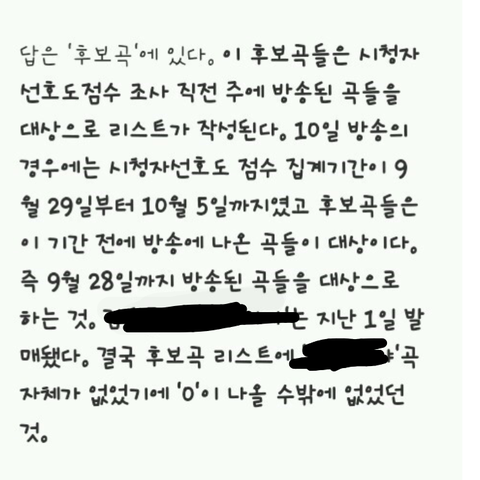 답은 '후보곡'에 있다. 이 후보곡들은 시청자
선호도점수 조사 직전 주에 방송된 곡들을
대상으로 리스트가 작성된다. 10일 방송의
경우에는 시청자선호도 점수 집계기간이 9
월 29일부터 10월 5일까지였고 후보곡들은
이 기간 전에 방송에 나온 곡들이 대상이다.
즉 9월 28일까지 방송된 곡들을 대상으로
하는 것. 는 지난 1일 발
매됐다. 결국 후보곡 리스트에 '곡
자체가 없었기에 '0'이 나올 수밖에 없었던
것.